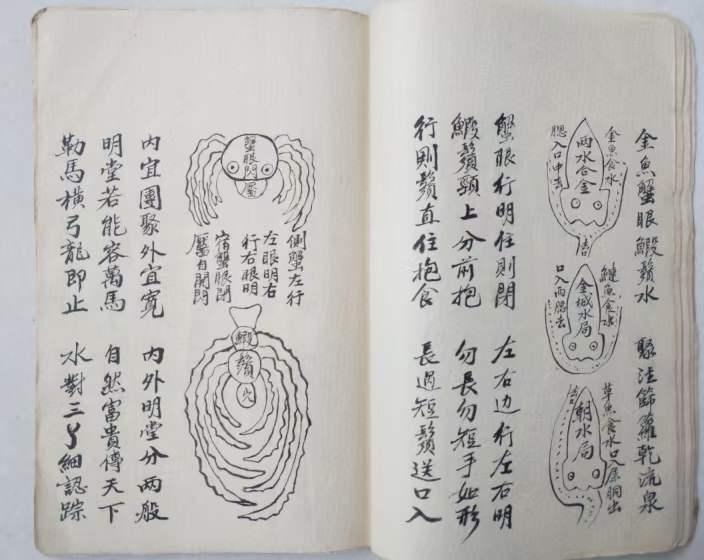 金魚蟹眼鰕鬚水 聚注篩籮乾流泉
金魚食水
腮入口中去
兩水合金
鰱魚食水
口入两腮去
金城水局
草魚食水口入
朝水局
蟹眼行明住則閉 左右边行左右明
鰕鬚頭上分前抱 勿長勿短手如形
行則鬚直住抱食 長過短鬚送口入
蟹眼閉
側蟹左行
左眼明右
行右眼明
宿蟹眼閉
鰕
鬚
穴
内宜團聚外宜寬 内外明堂分两般
明堂若能容萬馬 自然富貴傳天下
勒馬橫弓龍即止 水對三丫細認踪